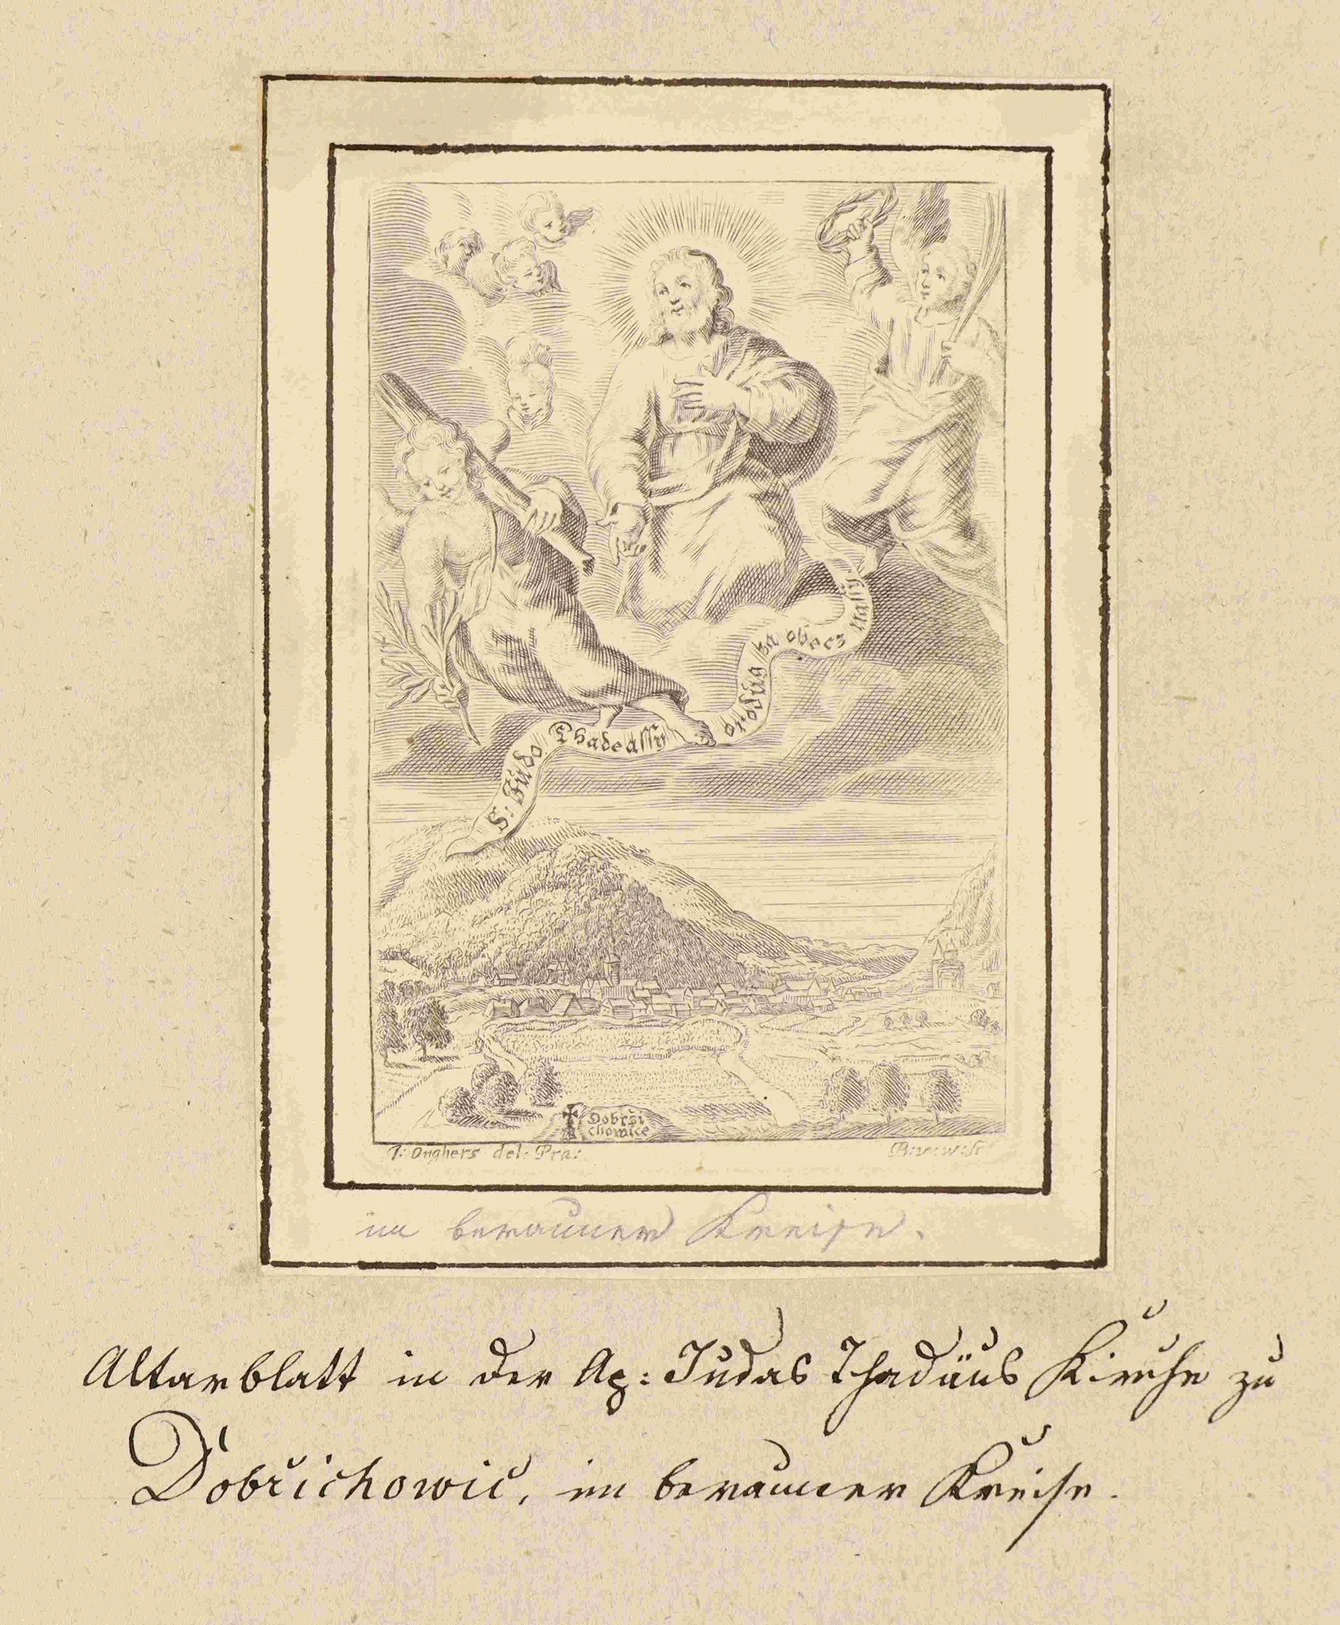 S: Júdo Thadeássÿ oroðúg za obecz nassÿ
Dobrži
chowice
I: Onghers del: Pra:
B:v:w:sc
im berauner Kreise.
Altarblatt in der Ap: Judas Thadäus Kirche zu
Dobřichowic, im berauner Kreise.